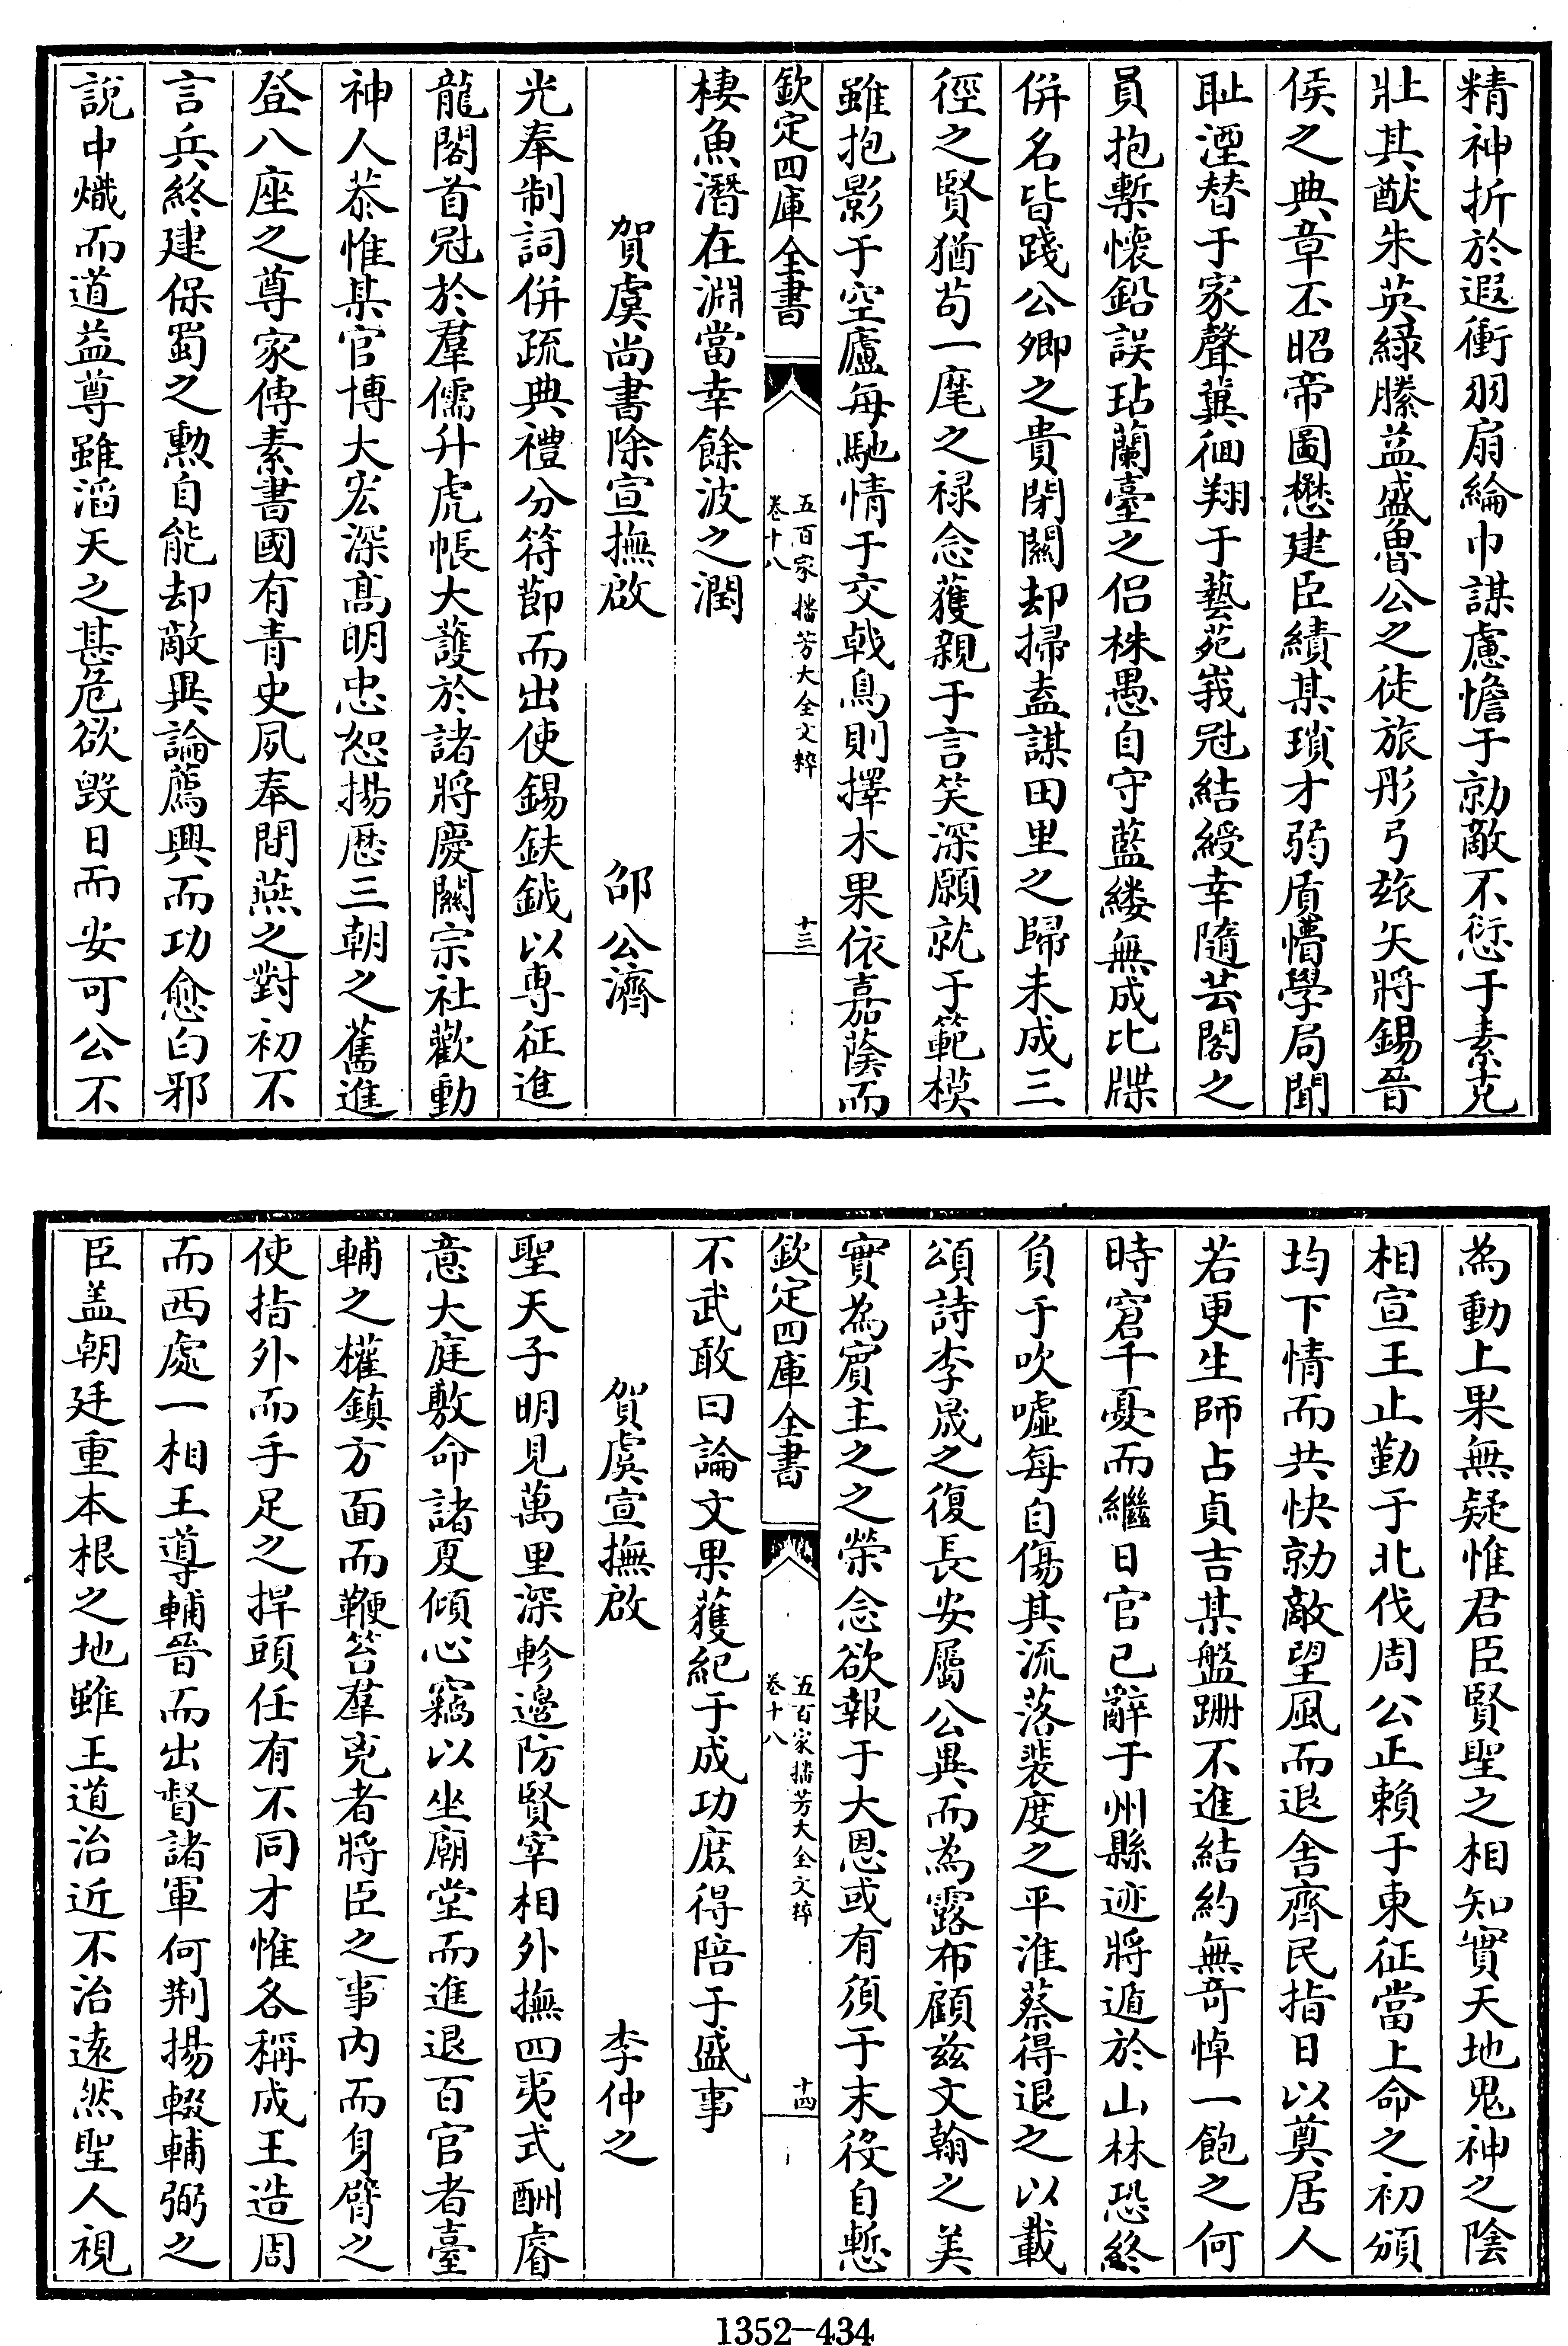 精神折於遐衝羽扇綸巾謀慮憺于勍敵不愆于素克
壯其猷朱英緑縢益盛魯公之徒旅彤弓玈矢將錫晉
侯之典章丕昭帝圖懋建臣績某瑣才弱质懵學局聞
耻湮替于家聲冀徊翔于藝苑峩冠結綬幸隨芸閣之
員抱槧懷鉛誤玷蘭臺之侣株愚自守藍縷無成比牒
併名皆踐公卿之貴閉關却掃盍謀田里之歸未成三
徑之賢猶苟一麾之禄念獲親于言笑深願就于範模
雖抱影于空廬每馳情于交戟鳥則擇木果依嘉蔭而
欽定四庫全書 五百家播芳大全文粹 卷十八 十三
棲魚潛在淵當幸餘波之潤
賀虞尚書除宣撫啟 邵公濟
光奉制詞併疏典禮分符節而出使錫鈇鉞以專征進
龍閣首冠於羣儒升虎帳大護於諸將慶關宗社歡動
神人恭惟某官博大宏深髙明忠恕揚歴三朝之舊進
登八座之尊家傳素書國有青史夙奉閒燕之對初不
言兵終建保蜀之勲自能却敵異論薦興而功愈白邪
說中熾而道益尊雖滔天之甚危欲毁日而安可公不
為動上果無疑惟君臣賢聖之相知實天地鬼神之陰
相宣王止勤于北伐周公正賴于東征當上命之初頒
均下情而共快勍敵望風而退舍齊民指日以奠居人
若更生師占貞吉某盤跚不進結約無奇悼一飽之何
時窘千憂而繼日官已辭于州縣迹將遁於山林恐終
負于吹嘘每自傷其流落裴度之平淮蔡得退之以載
頌詩李晟之復長安屬公異而為露布顧兹文翰之美
實為賓主之之榮念欲報于大恩或有須于末役自慙
欽定四庫全書 五百家播芳大全文粹 卷十八 十四
不武敢曰論文果獲紀于成功庶得陪于盛事
賀虞宣撫啟 李仲之
聖天子明見萬里深軫邊防賢宰相外撫四夷式酬睿
意大庭敷命諸夏傾心竊以坐廟堂而進退百官者臺
輔之權鎮方面而鞭笞羣兇者將臣之事内而身臂之
使指外而手足之捍頭任有不同才惟各稱成王造周
而西處一相王導輔晉而出督諸軍何荆揚輟輔弼之
臣盖朝廷重本根之地雖王道治近不治逺然聖人視
1352-434